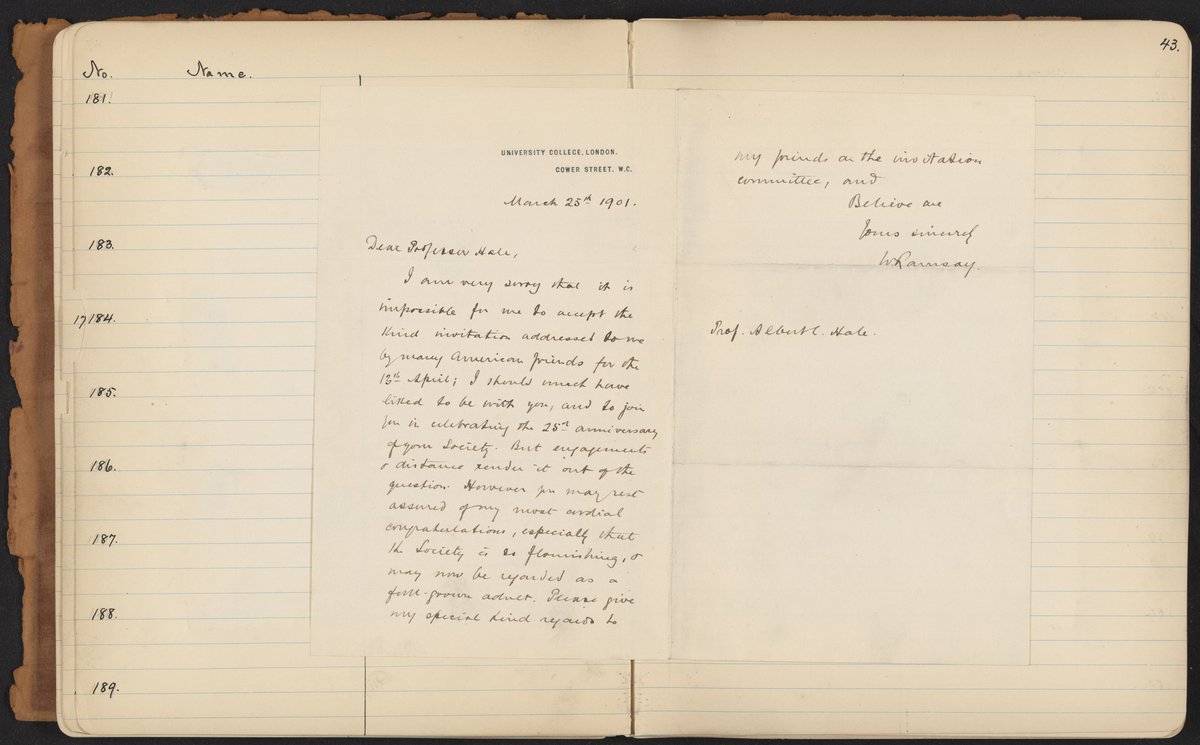 No. Name.
181.
182.
183.
17184.
185.
186.
187.
188.
189.
UNIVERSITY COLLEGE, LONDON.
GOWER STREET. W.C.
March 25th 1901.
Dear Professor Hale,
I am very sorry that it is
impossible for me to accept the
kind invitation addressed to me
by many American friends for the
12th April; I should much have
liked to be with you, and to join
you in celebrating the 25th anniversary
of your Society. But engagements
& distance render it out of the
question. However you may rest
assured of my most cordial
congratulations, especially that
the Society is so flourishing, &
may now be regarded as a
full-grown adult. Please give
my special kind regards to
43.
my friends on the invitation
committee, and
Believe me
Yours sincerely
WRamsay.
Prof. Albert C. Hale.